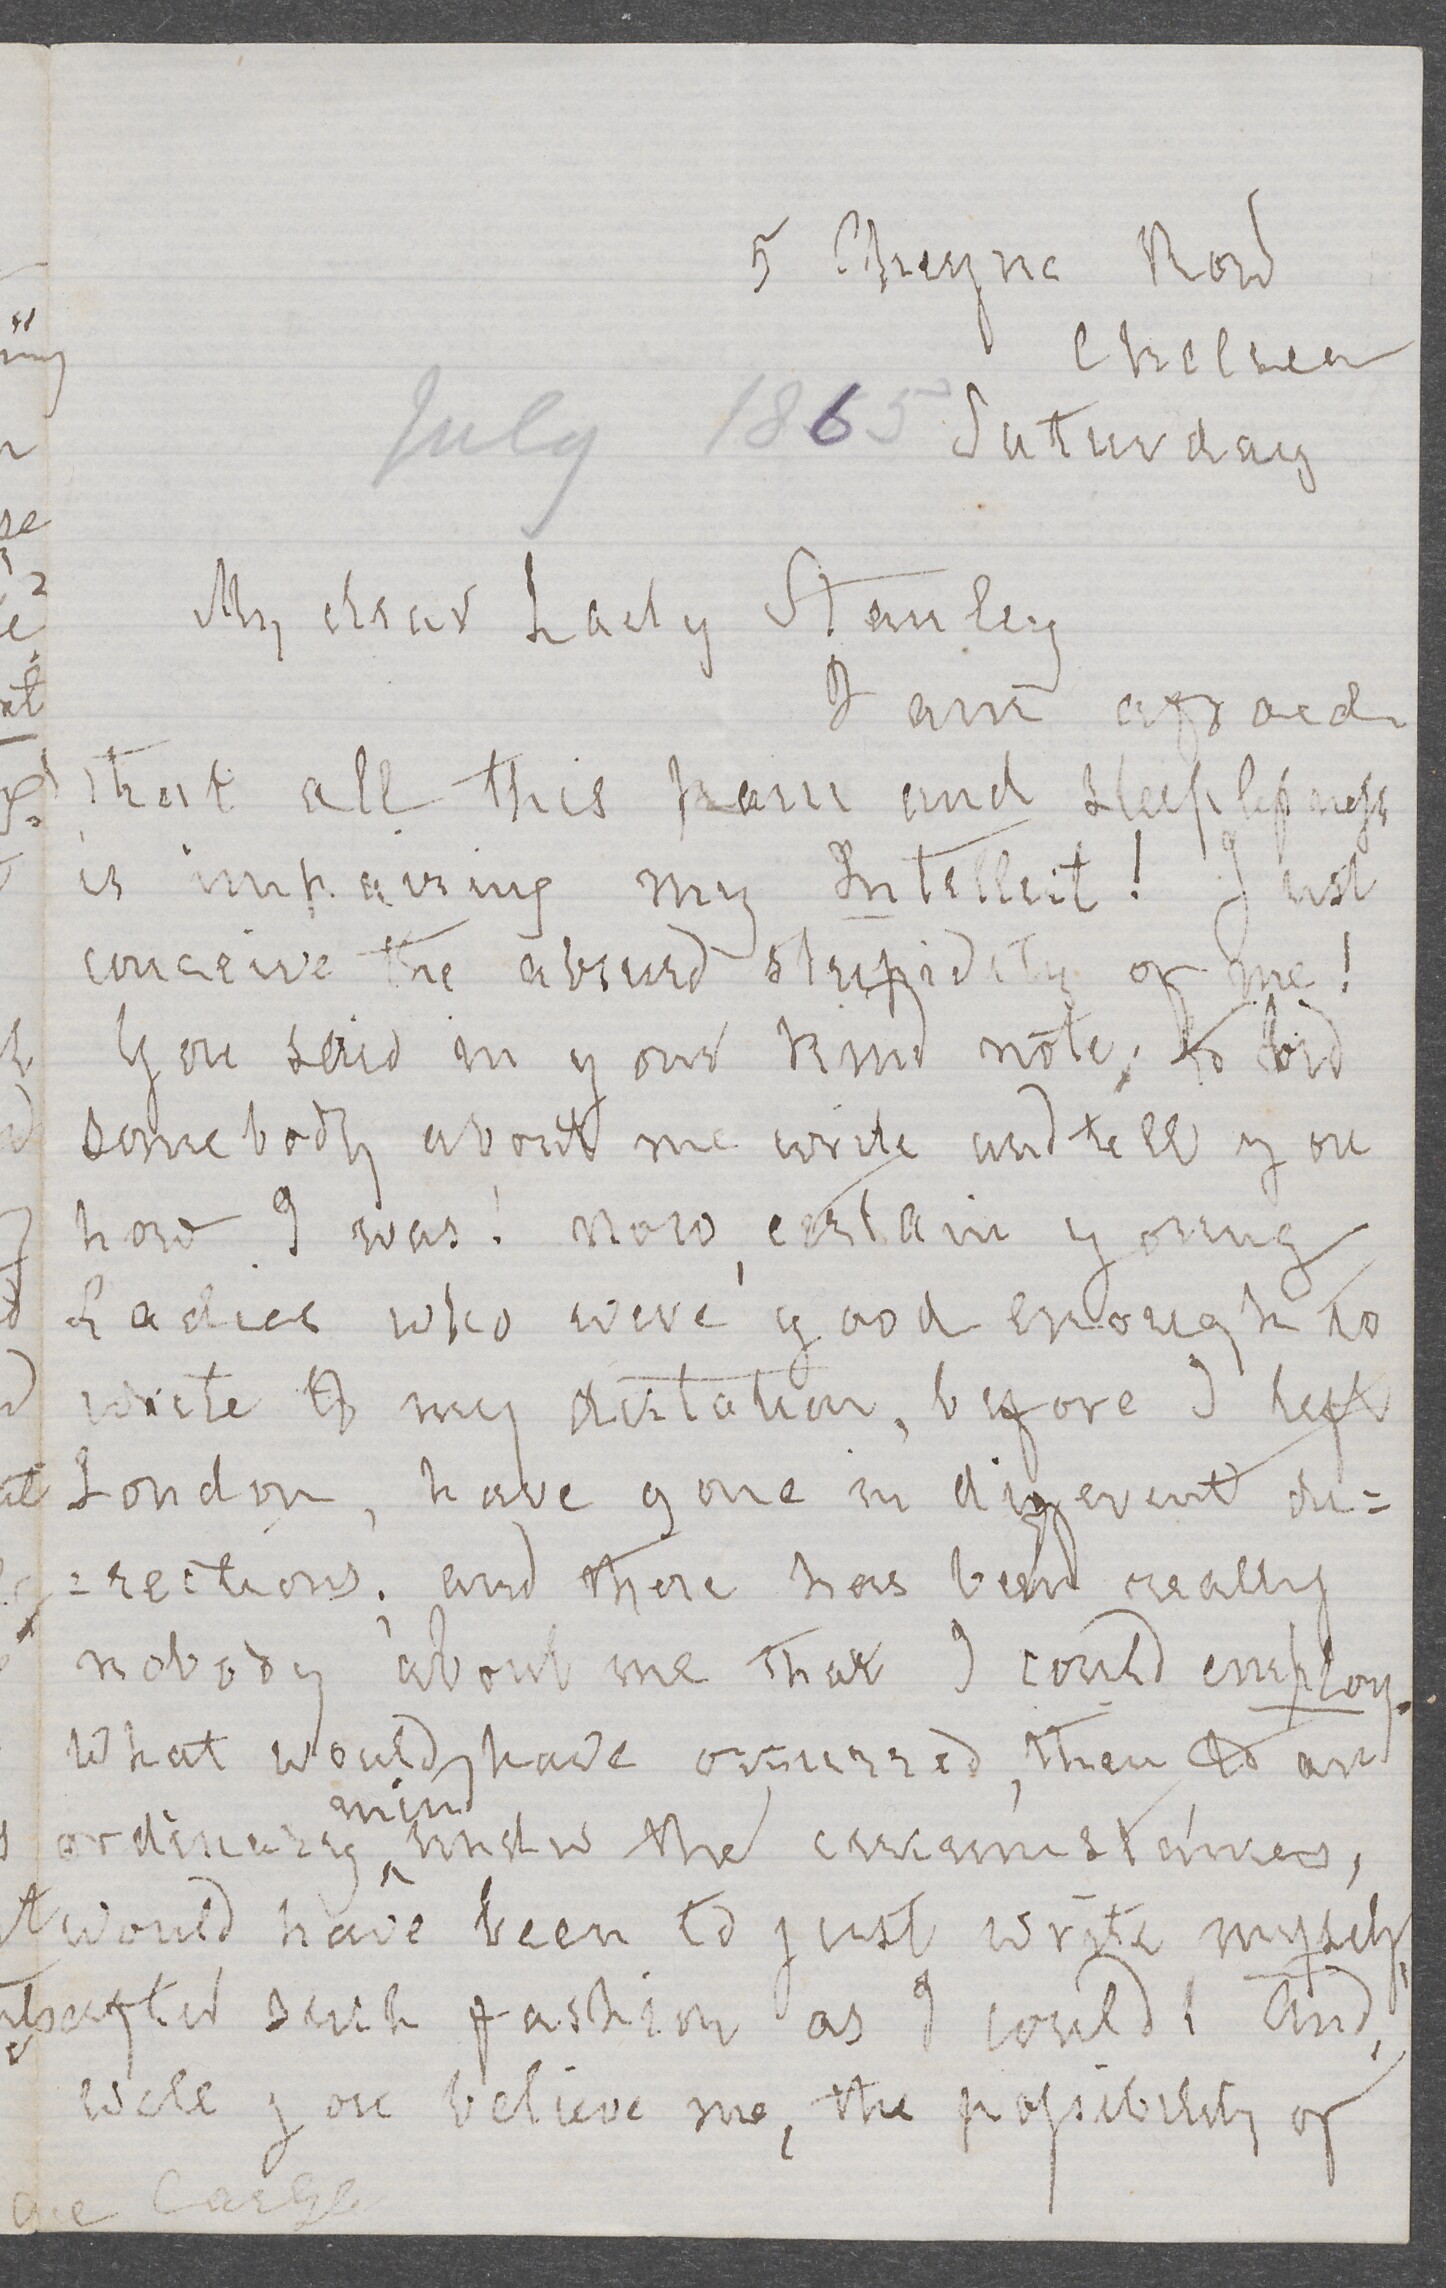 5 Cheyne Row
Chelsea
July 1865 Saturday
My dear Lady Stanley
I am afraid
that all this pain and sleeplessness
is impairing my Intellect! Just
conceive the absurd stupidity of me!
You said in your kind note, to bid
somebody about me write and tell you
how I was! now, certain young
Ladies who were good enough to
write to my dictation, before I left
London, have gone in different di=
=rections; and there has been really
nobody about me that I could employ.
What would have occurred, then to an
ordinary mind under the circumstances,
would have been to just write myself,
after such fashion as I could! And,
will you believe me, the possibility of
Carlyle